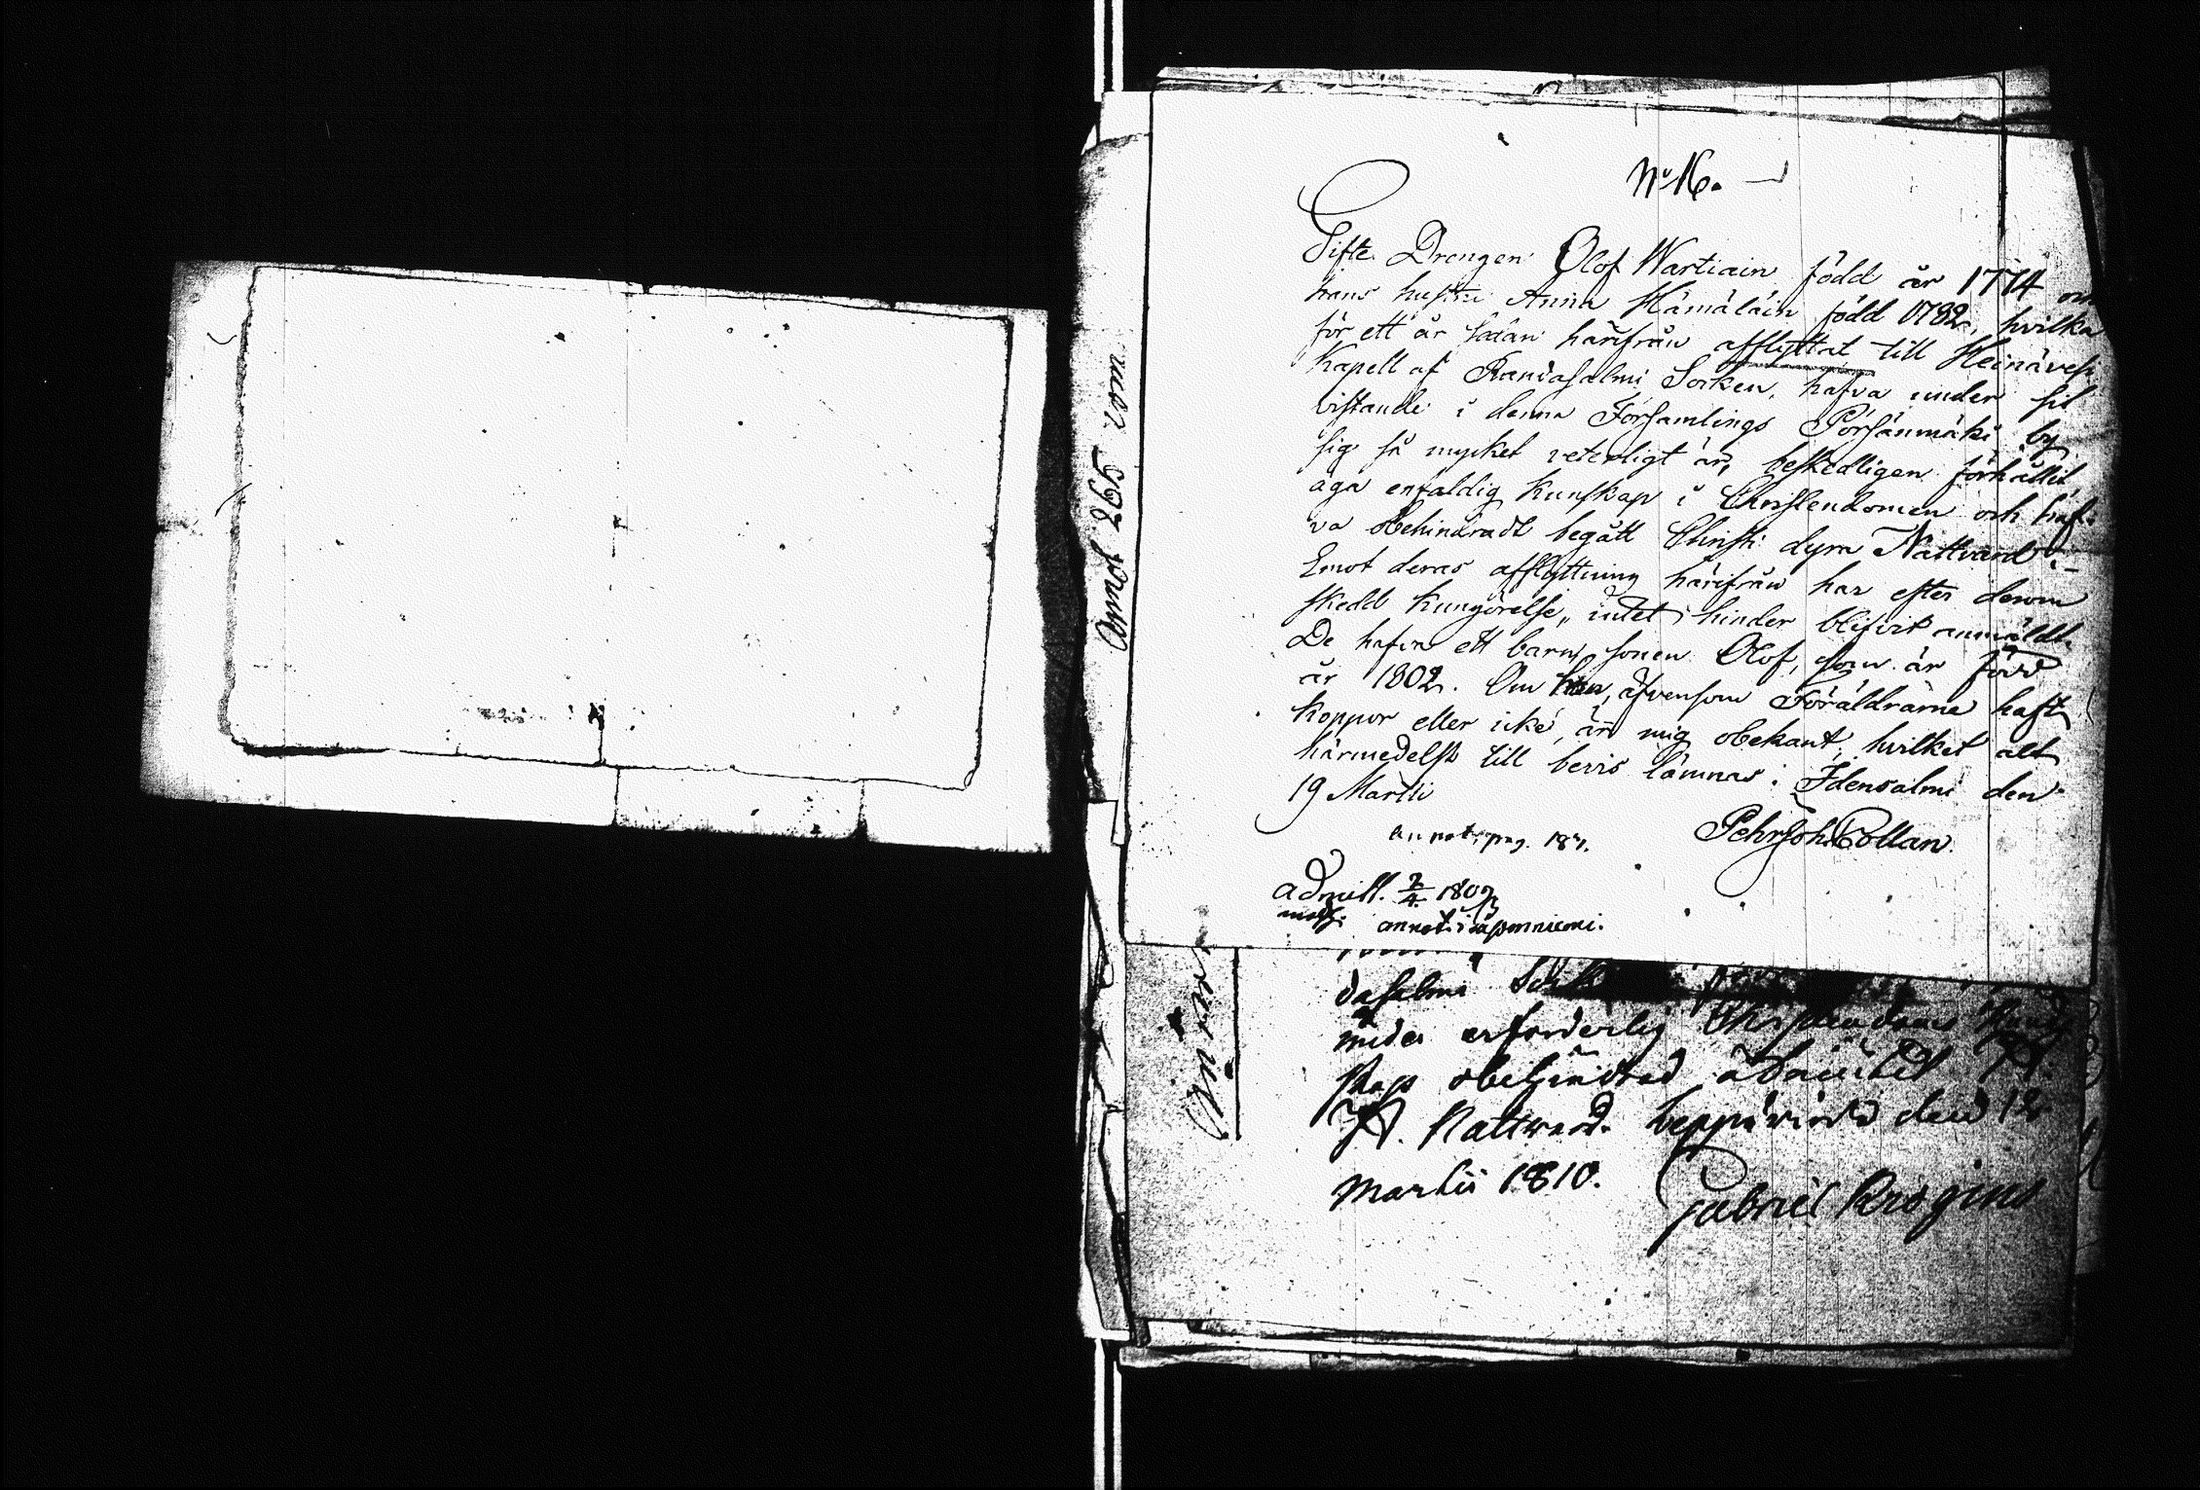 No 16.
Gifte Drengen Olof Wartiain född år 1774 och
hans hustru Anna Hämäläin född 1782, hvilka
för ett år sedan härifrån afflyttat till Heinävesi
Kapell af Randasalmi Socken, hafva under sit
vistande i denna Församlings Pörsänmäki by
sig så mycket veterligt är, beskedligen förhållit,
äga enfaldig kunskap i Christendomen och haf-
va obehindradt begått Christi dyra Nattvard.
Emot deras afflyttning härifrån har efter derom
skedd kungörelse, intet hinder blifvit anmäldt.
De hafva ett barn, sonen Olof, som är född
år 1802. Om han, äfvensom Föräldrarne haft
koppor eller icke, är mig obekant, hvilket alt
härmedelst till bevis lämnas: Idensalmi den
19 Martii
Pehr Joh. Collan.
annot. pag. 187.
admitt. 2/4 1807
annot. i
dasalmi Sock
med erforderlig Christendoms Kund
skap obehindrad admitted
H. Nattward. betygas den 12
Martii 1810.
Gabriel Krogius